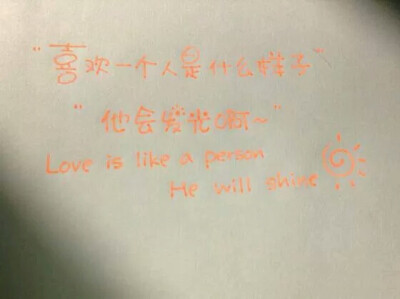 "喜欢一个人是什么样子"
"他会发光啊~"
Love is like a person
He will shine